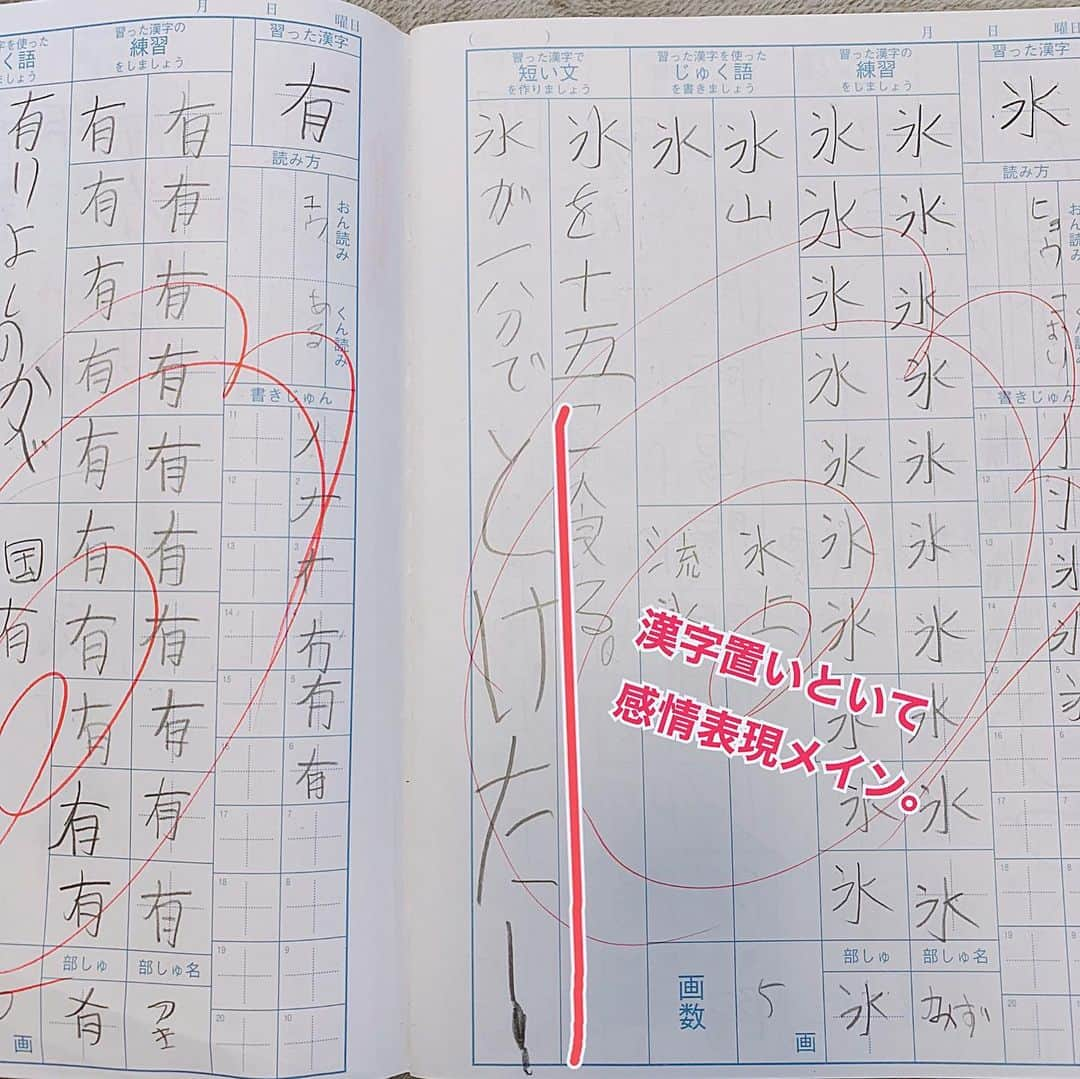 月 日 曜日
習った漢字
氷
読み方
おん読み
ヒョウ
こおり
書きじゅん
習った漢字の
練習
をしましょう
氷氷氷氷氷氷氷氷氷氷
氷氷氷氷氷氷氷氷氷氷
部しゅ名
みず
部しゅ
氷
習った漢字を使った
じゅく語
を書きましょう
氷山
氷上
氷
流氷
画数
5
画
習った漢字で
短い文
を作りましょう
氷を十五コ食る。
氷が一八分で
とけたー
漢字置いといて
感情表現メイン。
月 日 曜日
習った漢字
有
読み方
おん読み
ユウ
くん読み
ある
書きじゅん
習った漢字の
練習
をしましょう
有有有有有有有有有有
有有有有有有有有有有
部しゅ名
部しゅ
字を使った
く語
ましょう
国有
画